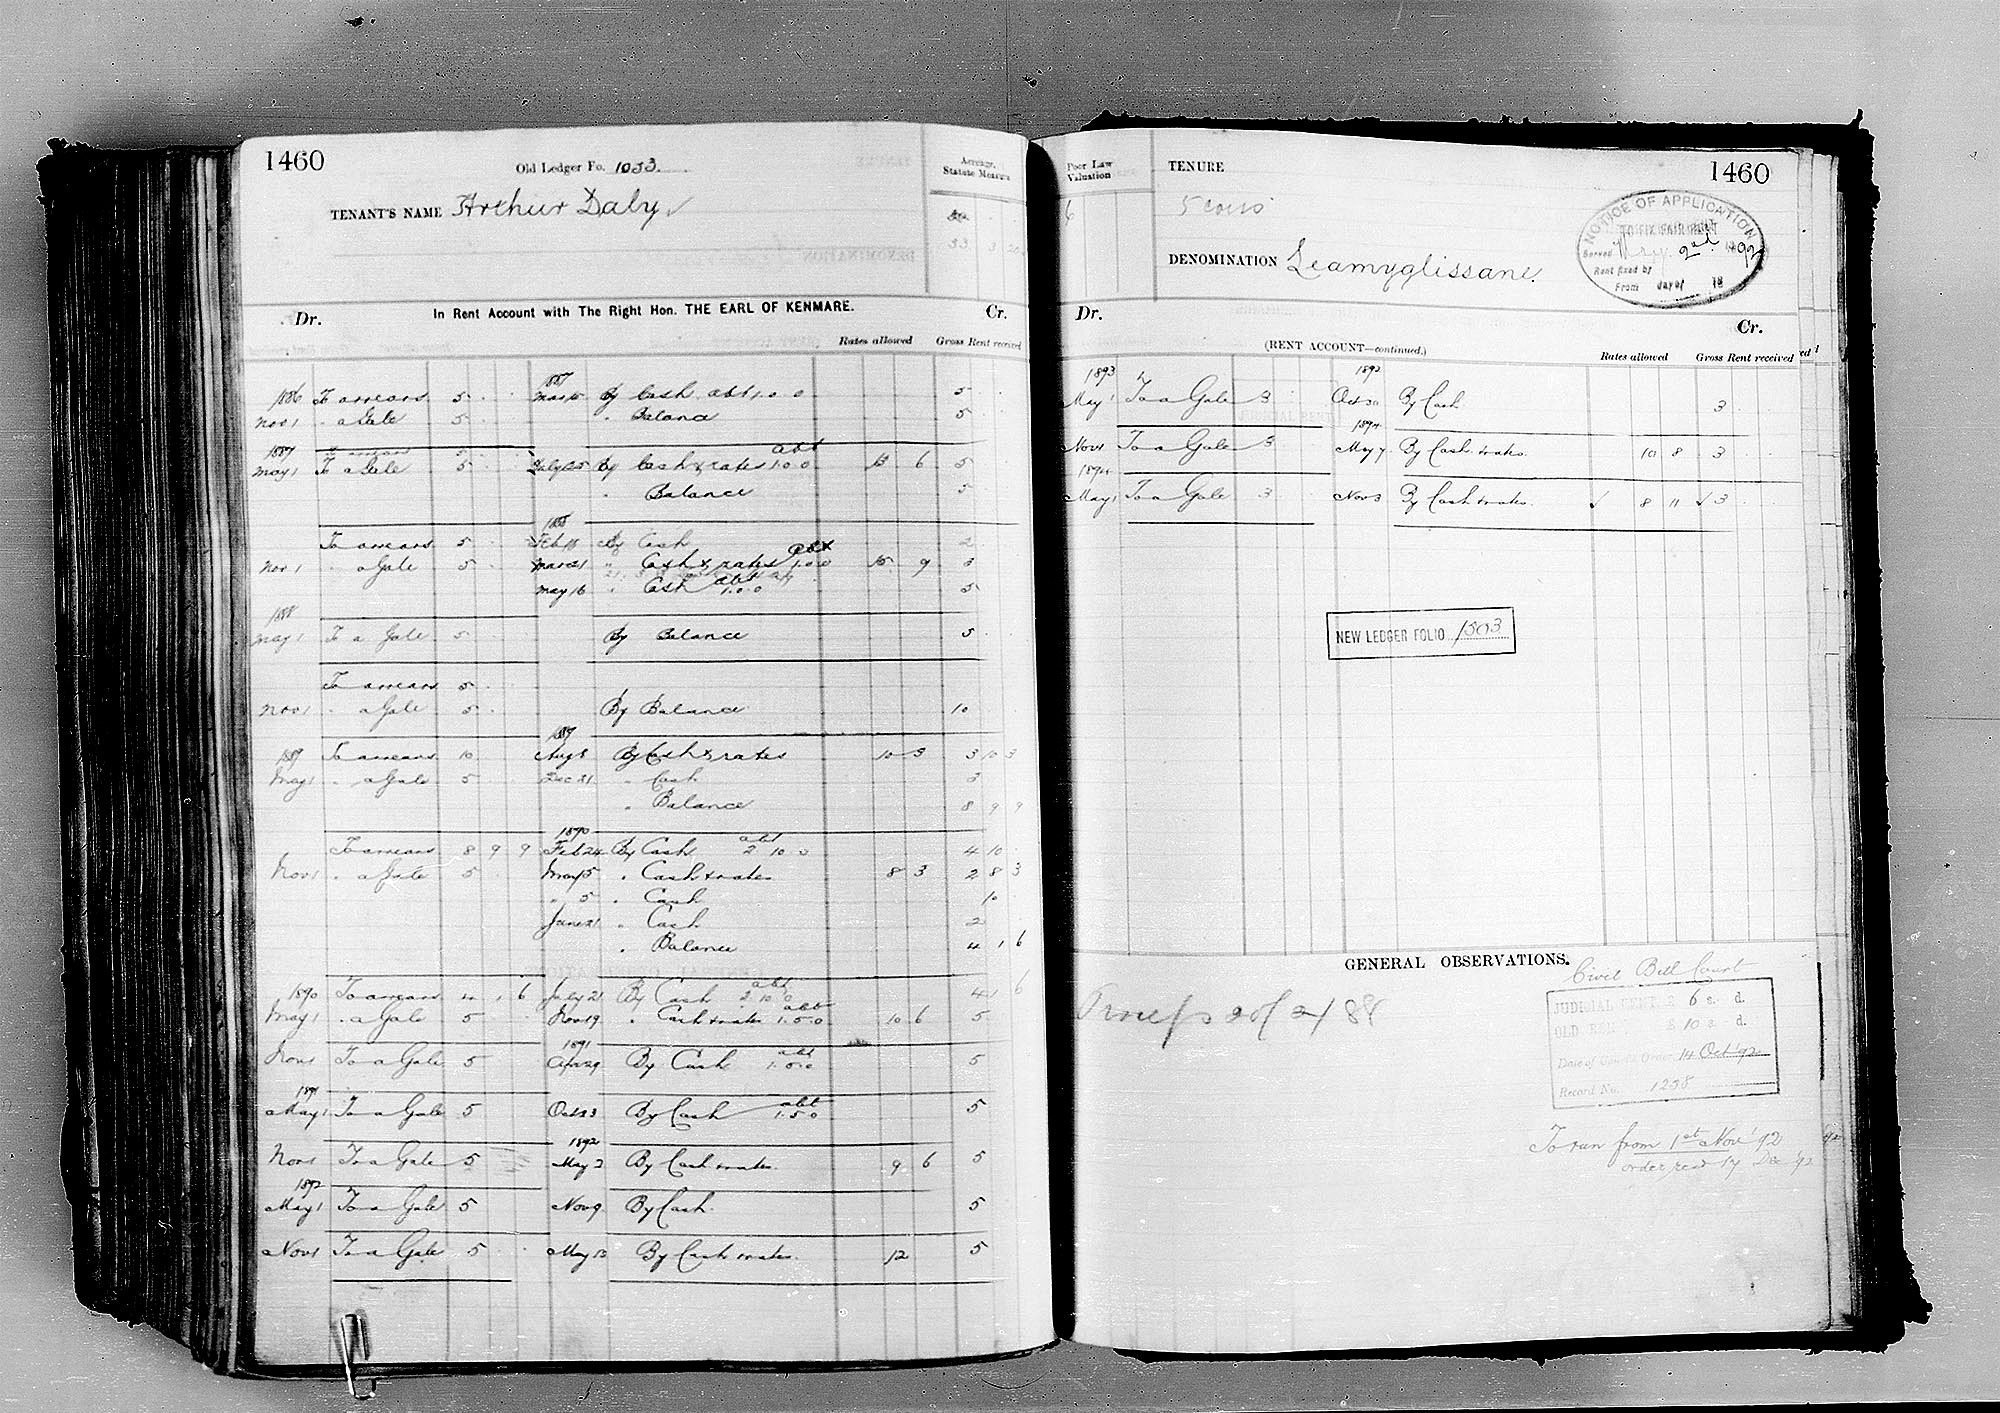 1460
Old Ledger Fo. 1053
Acreage, Statute Measure
TENANT'S NAME Arthur Daly
33 3 20
In Rent Account with The Right Hon. THE EARL OF KENMARE.
Dr. Cr.
Rates allowed Gross Rent received
1887
1886 To arrears 5 Mar 15 By Cash abt 1.0.0 5
Nov 1 " a Gale 5 " Balance 5
1887 abt
May 1 To a Gale 5 July 25 By Cash & rates 1.0.0 13 6 5
" Balance 5
1888
To arrears 5 Feb 18 By Cash 2
Nov 1 " a Gale 5 Mar 21 " Cash & rates abt 1.0.0 15 9 3
May 16 " Cash abt 1.0.0 5
1888
May 1 To a Gale 5 By Balance 5
To arrears 5
Nov 1 " a Gale 5 By Balance 10
1889
1889 To arrears 10 Aug 8 By Cash & rates 10 3 3 10 3
May 1 " a Gale 5 Dec 21 " Cash 3
" Balance 8 9 9
1890
To arrears 8 9 9 Feb 24 By Cash abt 2 10 0 4 10
Nov 1 " a Gale 5 May 5 " Cash & rates 8 3 2 8 3
" 5 " Cash 10
June 21 " Cash 2
" Balance 4 1 6
1890 To arrears 4 1 6 July 21 By Cash abt 2 10 0 4 1 6
May 1 " a Gale 5 Nov 19 " Cash & rates abt 1.5.0 10 6 5
1891
Nov 1 To a Gale 5 Apr 29 By Cash abt 1.5.0 5
1891
May 1 To a Gale 5 Oct 13 By Cash abt 1.5.0 5
1892
Nov 1 To a Gale 5 May 2 By Cash & rates 9 6 5
1892
May 1 To a Gale 5 Nov 9 By Cash 5
Nov 1 To a Gale 5 May 13 By Cash & rates 12 5
Poor Law Valuation
6
TENURE
1460
DENOMINATION Leamyglissane.
NOTICE OF APPLICATION
TO FIX FAIR RENT
Served May 2nd 1892
Rent fixed by
From day of 18
Dr. Cr.
(RENT ACCOUNT—continued.)
Rates allowed Gross Rent received
1893 1892
May 1 To a Gale 3 Oct 30 By Cash 3
1894
Nov 1 To a Gale 3 May 7 By Cash & rates 10 8 3
1894
May 1 To a Gale 3 Nov 3 By Cash & rates 8 11 3
NEW LEDGER FOLIO 1503
GENERAL OBSERVATIONS.
Civil Bill Court
JUDICIAL RENT, £ 6 s. d.
OLD RENT, £ 10 s. d.
Date of Court's Order, 14 Oct '92
Record No. 1238
Process 20/2/88
To run from 1st Nov '92
order recd 17 Dec '92